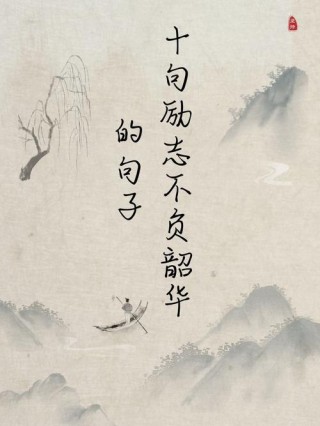 十句励志不负韶华
的句子